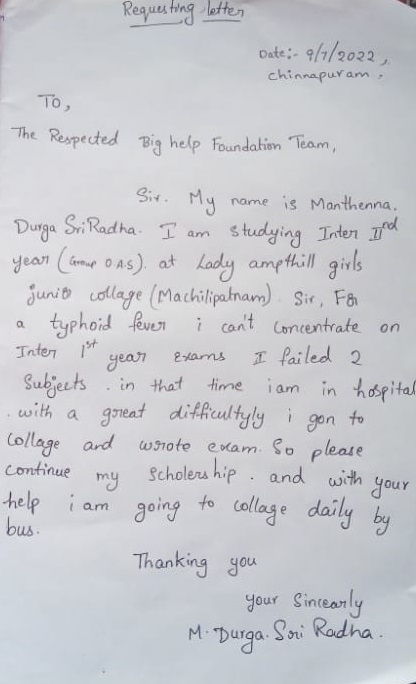 Requesting letter
Date:- 9/7/2022,
Chinnapuram,
To,
The Respected Big help Foundation Team,
Sir. My name is Manthenna.
Durga Sri Radha. I am studying Inter IInd
year (Group OAS). at Lady ampthill girls
collage (Machilipatnam). Sir, For
a typhoid fever i can't concentrate on
Inter 1st year exams I failed 2
Subjects. in that time i am in hospital
. with a great difficultyly i gon to
Collage and wrote exam. So please
Continue my Scholership. and with your
help i am going to collage daily by
bus.
Thanking you
your Sincearly
M. Durga. Sri Radha.